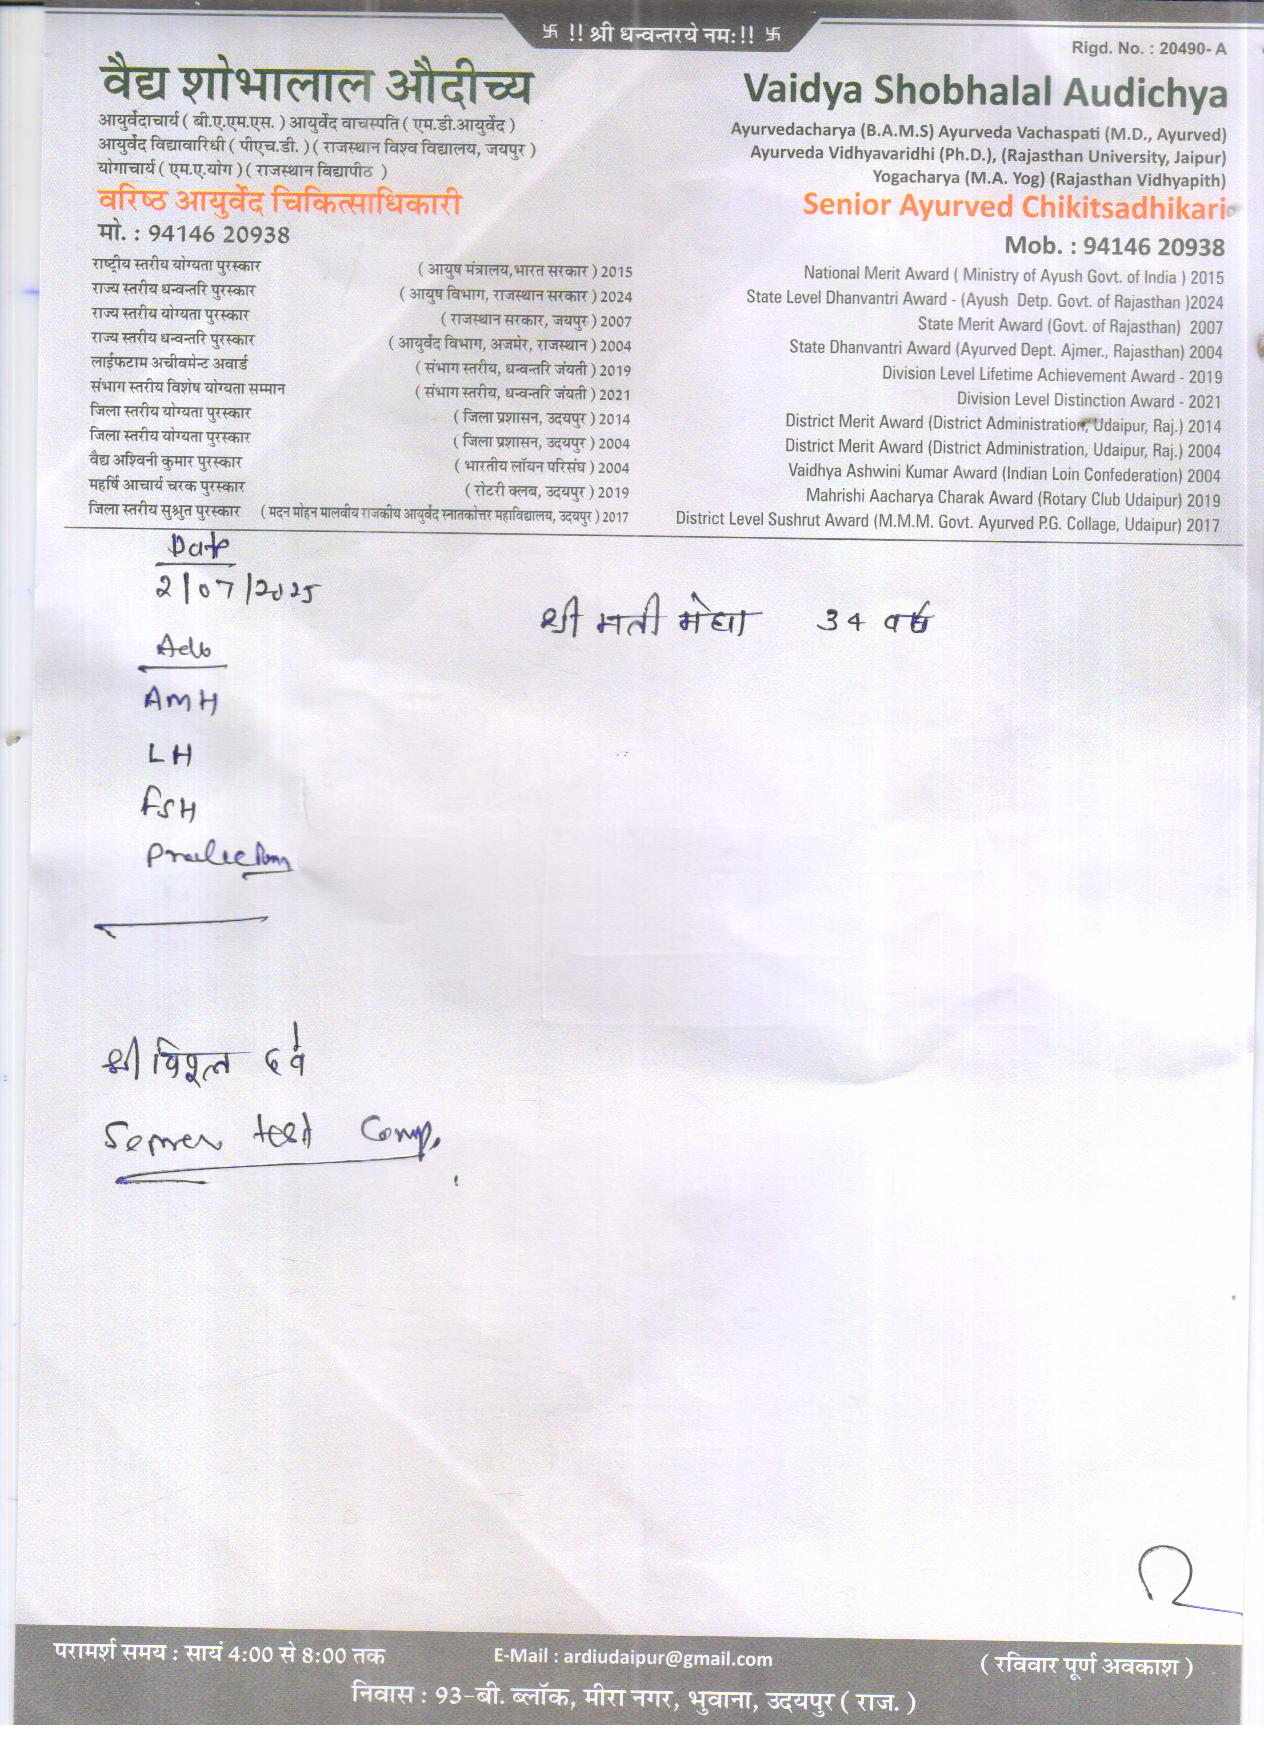 卐 !! श्री धन्वन्तरये नम:!! 卐
Rigd. No. : 20490- A
वैद्य शोभालाल औदीच्य
आयुर्वेदाचार्य ( बी.ए.एम.एस. ) आयुर्वेद वाचस्पति ( एम.डी.आयुर्वेद )
आयुर्वेद विद्यावारिधी ( पीएच.डी. ) ( राजस्थान विश्व विद्यालय, जयपुर )
योगाचार्य ( एम.ए.योग ) ( राजस्थान विद्यापीठ )
वरिष्ठ आयुर्वेद चिकित्साधिकारी
मो. : 94146 20938
Vaidya Shobhalal Audichya
Ayurvedacharya (B.A.M.S) Ayurveda Vachaspati (M.D., Ayurved)
Ayurveda Vidhyavaridhi (Ph.D.), (Rajasthan University, Jaipur)
Yogacharya (M.A. Yog) (Rajasthan Vidhyapith)
Senior Ayurved Chikitsadhikari
Mob. : 94146 20938
राष्ट्रीय स्तरीय योग्यता पुरस्कार ( आयुष मंत्रालय,भारत सरकार ) 2015
राज्य स्तरीय धन्वन्तरि पुरस्कार ( आयुष विभाग, राजस्थान सरकार ) 2024
राज्य स्तरीय योग्यता पुरस्कार ( राजस्थान सरकार, जयपुर ) 2007
राज्य स्तरीय धन्वन्तरि पुरस्कार ( आयुर्वेद विभाग, अजमेर, राजस्थान ) 2004
लाईफटाम अचीवमेन्ट अवार्ड ( संभाग स्तरीय, धन्वन्तरि जंयती ) 2019
संभाग स्तरीय विशेष योग्यता सम्मान ( संभाग स्तरीय, धन्वन्तरि जंयती ) 2021
जिला स्तरीय योग्यता पुरस्कार ( जिला प्रशासन, उदयपुर ) 2014
जिला स्तरीय योग्यता पुरस्कार ( जिला प्रशासन, उदयपुर ) 2004
वैद्य अश्विनी कुमार पुरस्कार ( भारतीय लॉयन परिसंघ ) 2004
महर्षि आचार्य चरक पुरस्कार ( रोटरी क्लब, उदयपुर ) 2019
जिला स्तरीय सुश्रुत पुरस्कार ( मदन मोहन मालवीय राजकीय आयुर्वेद स्नातकोत्तर महाविद्यालय, उदयपुर ) 2017
National Merit Award ( Ministry of Ayush Govt. of India ) 2015
State Level Dhanvantri Award - (Ayush Detp. Govt. of Rajasthan )2024
State Merit Award (Govt. of Rajasthan) 2007
State Dhanvantri Award (Ayurved Dept. Ajmer., Rajasthan) 2004
Division Level Lifetime Achievement Award - 2019
Division Level Distinction Award - 2021
District Merit Award (District Administration, Udaipur, Raj.) 2014
District Merit Award (District Administration, Udaipur, Raj.) 2004
Vaidhya Ashwini Kumar Award (Indian Loin Confederation) 2004
Mahrishi Aacharya Charak Award (Rotary Club Udaipur) 2019
District Level Sushrut Award (M.M.M. Govt. Ayurved P.G. Collage, Udaipur) 2017
Date
2/07/2025
श्री मती मेघा 34 वर्ष
Adv
AMH
LH
FSH
Prolectom
श्री
test Comp.
परामर्श समय : सायं 4:00 से 8:00 तक
E-Mail : ardiudaipur@gmail.com
( रविवार पूर्ण अवकाश )
निवास : 93-बी. ब्लॉक, मीरा नगर, भुवाना, उदयपुर ( राज. )